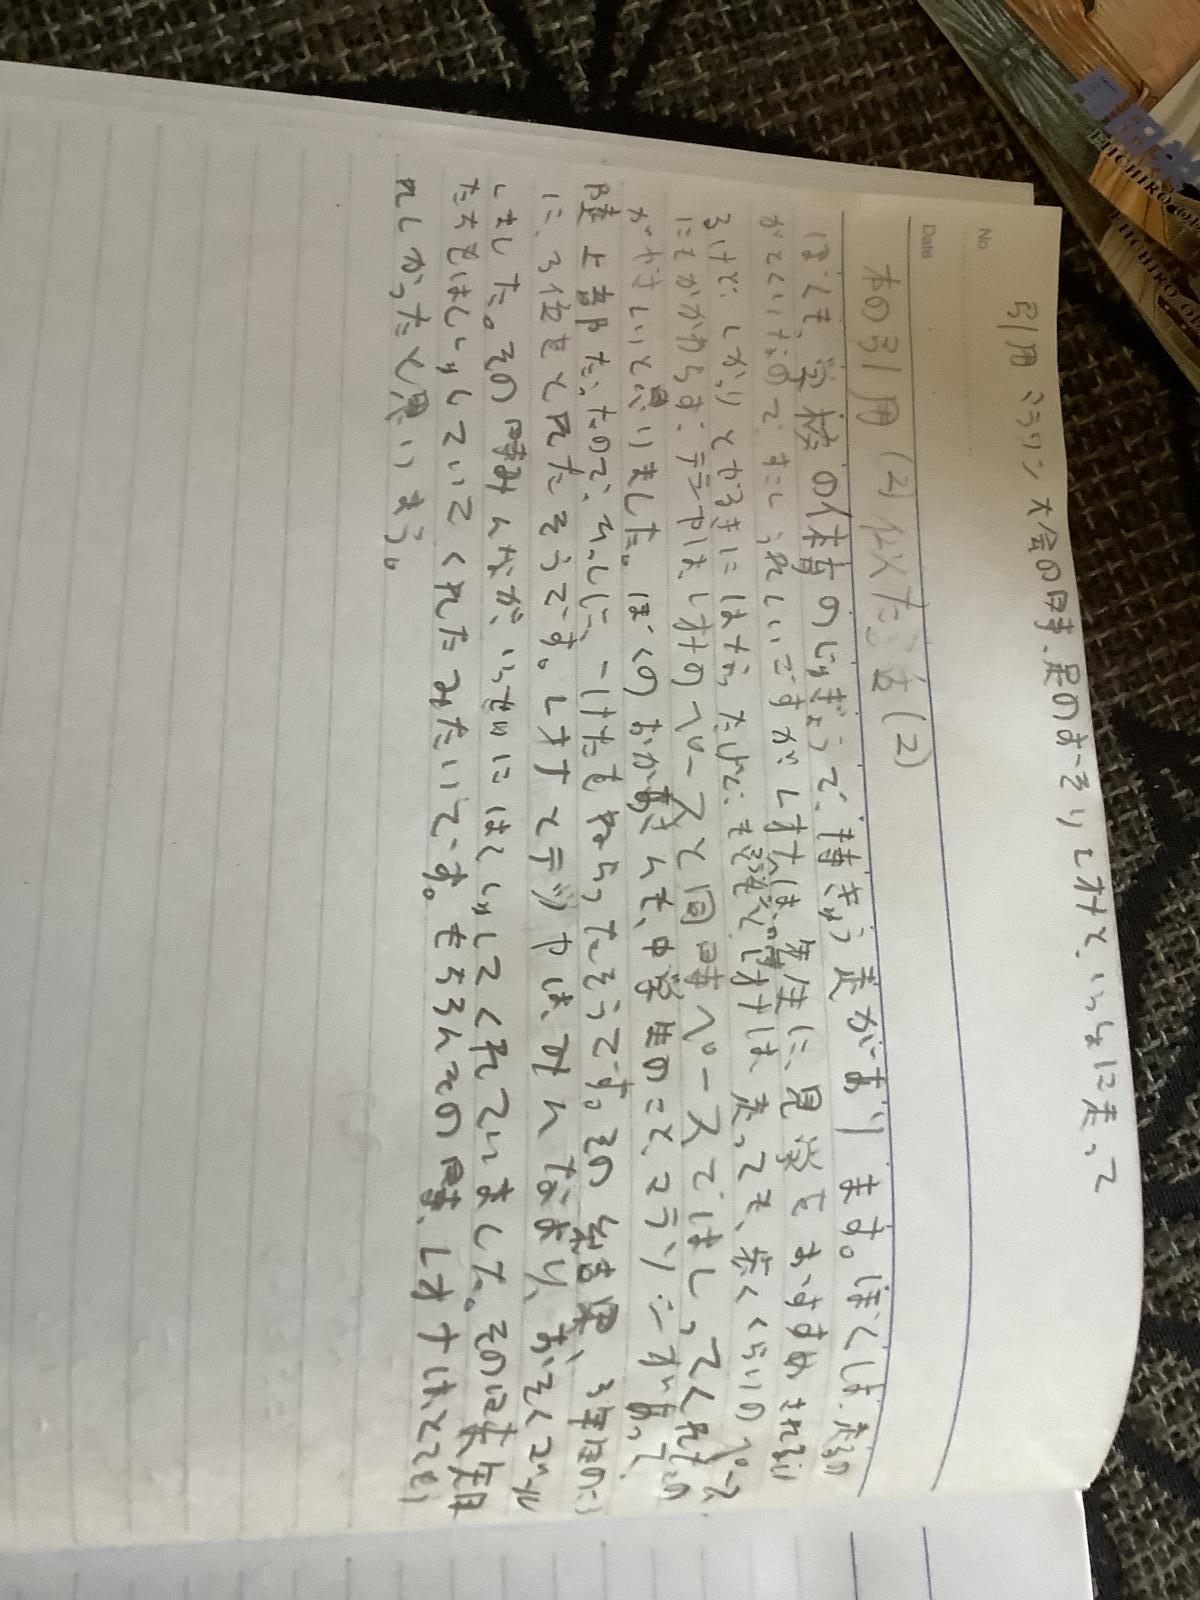 引用 マラソン大会の時、足のおそいレオナと、いっしょに走って
本の引用(2)似た話(2)
ぼくも、学校の体育のじゅぎょうで、持きゅう走があります。ぼくは、走るの
がとくいなのですごくうれしいですがレオナは、先生に、見学をおすすめされる
けど、しっかりとやるきにはなったけど、もともとレオナは、走っても、歩くくらいのペース
にもかかわらず、テラヤはレオナのペースと同時ペースではしってくれたの
がやさしいと思いました。ぼくのお母さんも、中学生のころ、マラソンがあって、
陸上部だったので、ひっしに、一けたをねらったそうです。その結果、3年ほのに
に、3位をとれたそうです。レオナとテツヤは、みんなより、おそくゴール
しました。その時みんなが、いっせいにはくしゅしてくれていました。その口未知
たちもはくしゅしていてくれたみたいです。もちろんその時、レオナはとてもう
れしかったと思います。
No.
Date
EIICHIRO ODA
EIICHIRO O